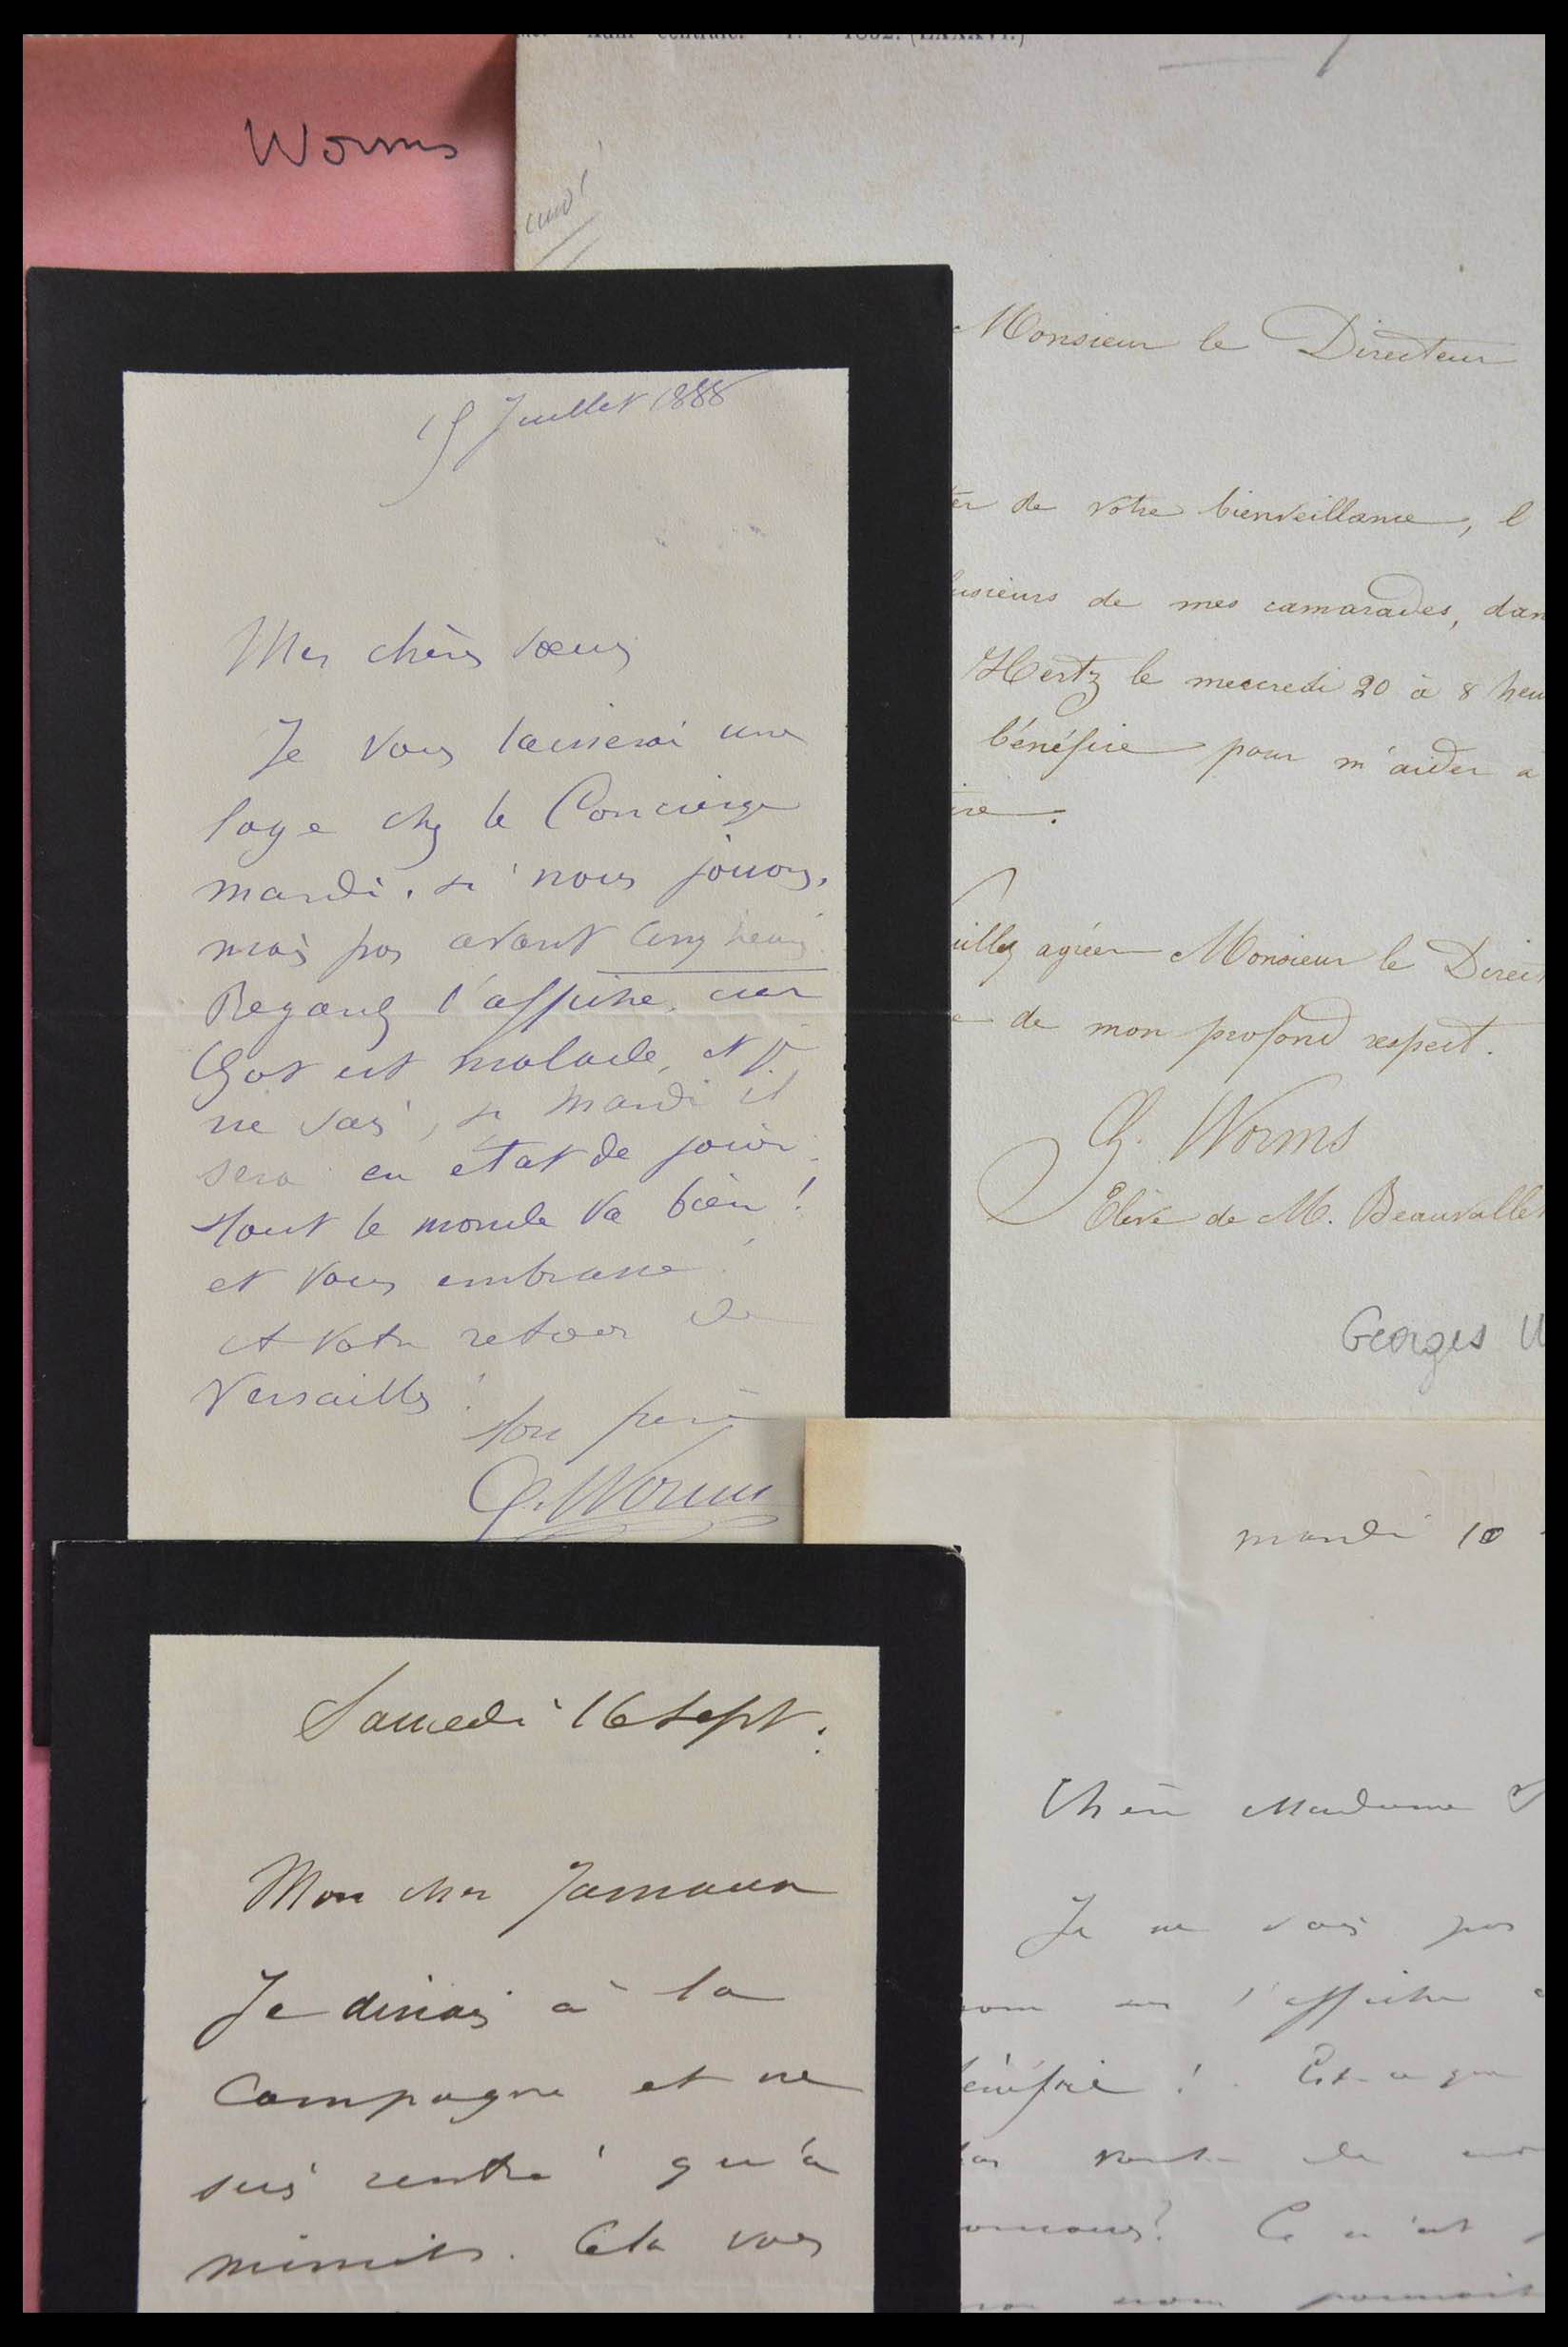 Adm centrale. 1852. (LXXXVI.)
Worms
Monsieur le Directeur
de votre bienveillance, l
usieurs de mes camarades, dan
Hertz le mecredi 20 à 8 heu
bénéfice pour m'aider a
ire.
uillez agréer Monsieur le Direct
e de mon profond respect.
G. Worms
Elève de M. Beauvallet
Georges W
15 Juillet 1888
Mes chères sœurs
Je vous laisserai une
loge chez le Concierge
mardi, si nous jouons,
mais pas avant cinq heures
Regardez l'affiche, car
Got est malade, et je
ne sais, si mardi il
sera en état de jouer.
Tout le monde va bien !
et vous embrasse !
A votre retour de
Versailles !
Ton frère
G. Worms
Samedi 16 Sept.
Mon cher
Je dinais à la
Campagne et ne
suis rentré qu'à
minuit. Cela vous
mardi 10
Chère Madame
Je ne vais pas
nom sur l'affiche
bénéfice ! Est-ce que
pas
Ce n'est
nom pourrait